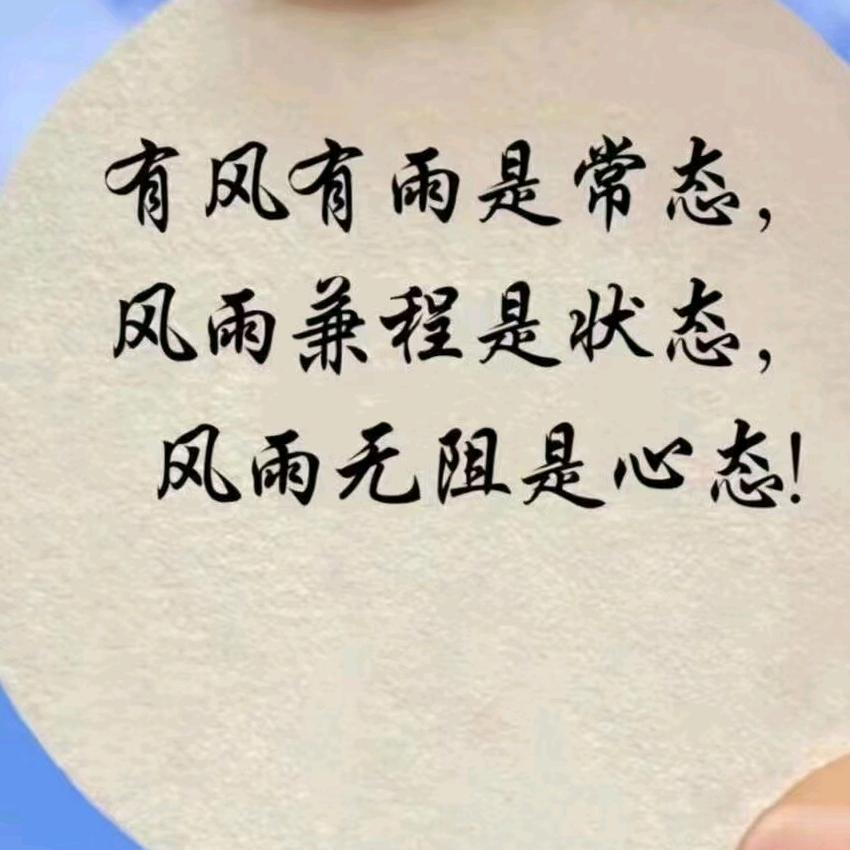 有风有雨是常态,
风雨兼程是状态,
风雨无阻是心态!